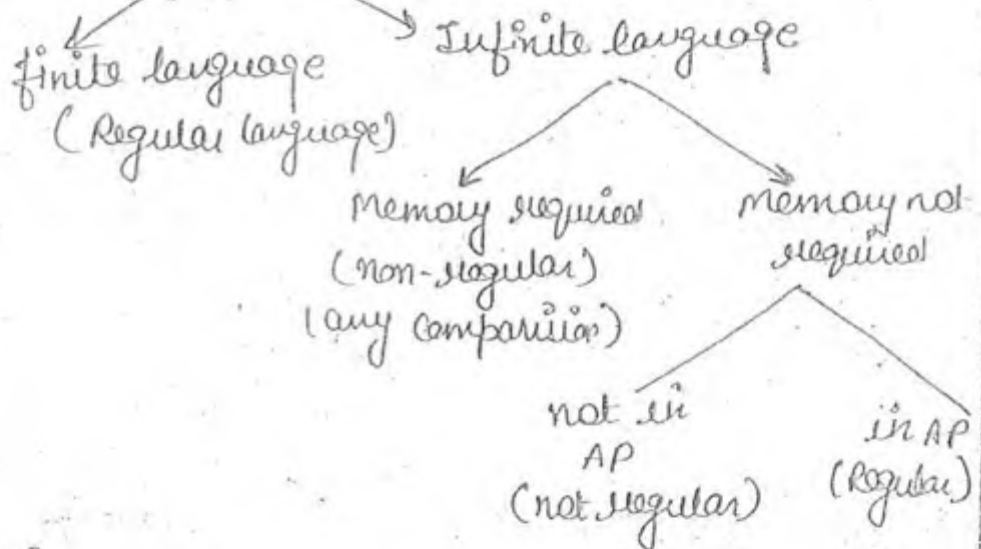 finite language
(Regular language)
Infinite language
Memory required
(non-regular)
(any comparision)
memory not
required
not in
AP
(not regular)
in AP
(Regular)